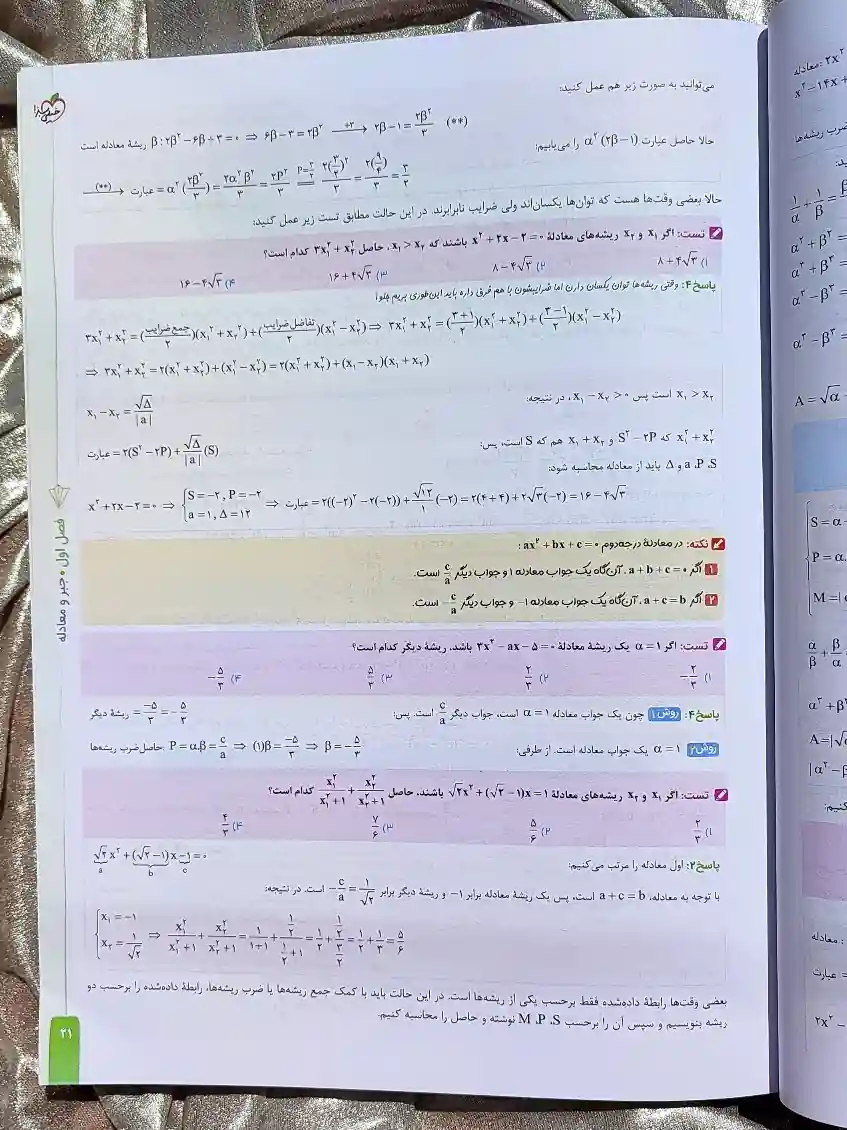 می‌توانید به صورت زیر هم عمل کنید:
β : ۲β² − ۶β + ۳ = ۰ ⇒ ۶β − ۳ = ۲β² ÷۳→ ۲β − ۱ = ۲β²/۳ (**) ریشهٔ معادله است
حالا حاصل عبارت α²(۲β − ۱) را می‌یابیم:
(**)→ عبارت = α²(۲β²/۳) = ۲α²β²/۳ = ۲P²/۳ P=۳/۲ = ۲(۳/۲)²/۳ = ۲(۹/۴)/۳ = ۳/۲
حالا بعضی وقت‌ها هست که توان‌ها یکسان‌اند ولی ضرایب نابرابرند. در این حالت مطابق تست زیر عمل کنید:
تست: اگر x₁ و x₂ ریشه‌های معادلهٔ x² + ۲x − ۲ = ۰ باشند که x₁ > x₂، حاصل ۳x₁² + x₂² کدام است؟
۱) ۸ + ۴√۳ ۲) ۸ − ۴√۳ ۳) ۱۶ + ۴√۳ ۴) ۱۶ − ۴√۳
پاسخ ۴: وقتی ریشه‌ها توان یکسان دارن اما ضرایبشون با هم فرق داره باید این‌طوری بریم جلو:
۳x₁² + x₂² = (جمع ضرایب/۲)(x₁² + x₂²) + (تفاضل ضرایب/۲)(x₁² − x₂²) ⇒ ۳x₁² + x₂² = (۳+۱/۲)(x₁² + x₂²) + (۳−۱/۲)(x₁² − x₂²)
⇒ ۳x₁² + x₂² = ۲(x₁² + x₂²) + (x₁² − x₂²) = ۲(x₁² + x₂²) + (x₁ − x₂)(x₁ + x₂)
x₁ > x₂ است پس x₁ − x₂ > ۰، در نتیجه:
x₁ − x₂ = √Δ/|a|
x₁² + x₂² که S² − ۲P و x₁ + x₂ هم که S است، پس:
عبارت = ۲(S² − ۲P) + √Δ/|a| (S)
a ،P ،S و Δ باید از معادله محاسبه شود:
x² + ۲x − ۲ = ۰ ⇒ {S = −۲, P = −۲
a = ۱, Δ = ۱۲ ⇒ عبارت = ۲((−۲)² − ۲(−۲)) + √۱۲/۱ (−۲) = ۲(۴+۴) + ۲√۳(−۲) = ۱۶ − ۴√۳
نکته: در معادلهٔ درجه‌دوم ax² + bx + c = ۰ :
۱ اگر a + b + c = ۰، آن‌گاه یک جواب معادله ۱ و جواب دیگر c/a است.
۲ اگر a + c = b، آن‌گاه یک جواب معادله ۱− و جواب دیگر −c/a است.
تست: اگر α = ۱ یک ریشهٔ معادلهٔ ۳x² − ax − ۵ = ۰ باشد، ریشهٔ دیگر کدام است؟
۱) −۲/۳ ۲) ۲/۳ ۳) ۵/۳ ۴) −۵/۳
پاسخ ۴: روش ۱ چون یک جواب معادله α = ۱ است، جواب دیگر c/a است. پس: ریشهٔ دیگر = −۵/۳ = −۵/۳
روش ۲ α = ۱ یک جواب معادله است. از طرفی: حاصل‌ضرب ریشه‌ها: P = α.β = c/a ⇒ (۱)β = −۵/۳ ⇒ β = −۵/۳
تست: اگر x₁ و x₂ ریشه‌های معادلهٔ √۲x² + (√۲ − ۱)x = ۱ باشند، حاصل x₁²/x₁²+۱ + x₂²/x₂²+۱ کدام است؟
۱) ۲/۳ ۲) ۵/۶ ۳) ۷/۶ ۴) ۴/۳
پاسخ ۲: اول معادله را مرتب می‌کنیم:
√۲x² + (√۲ − ۱)x − ۱ = ۰
a b c
با توجه به معادله، a + c = b است، پس یک ریشهٔ معادله برابر ۱− و ریشهٔ دیگر برابر −c/a = ۱/√۲ است. در نتیجه:
{x₁ = −۱
x₂ = ۱/√۲ ⇒ x₁²/x₁²+۱ + x₂²/x₂²+۱ = ۱/۱+۱ + (۱/۲)/(۱/۲+۱) = ۱/۲ + (۱/۲)/(۳/۲) = ۱/۲ + ۱/۳ = ۵/۶
بعضی وقت‌ها رابطهٔ داده‌شده فقط برحسب یکی از ریشه‌ها است. در این حالت باید با کمک جمع ریشه‌ها یا ضرب ریشه‌ها، رابطهٔ داده‌شده را برحسب دو
ریشه بنویسیم و سپس آن را برحسب M ،P ،S نوشته و حاصل را محاسبه کنیم.
فصل اول • جبر و معادله
۲۱